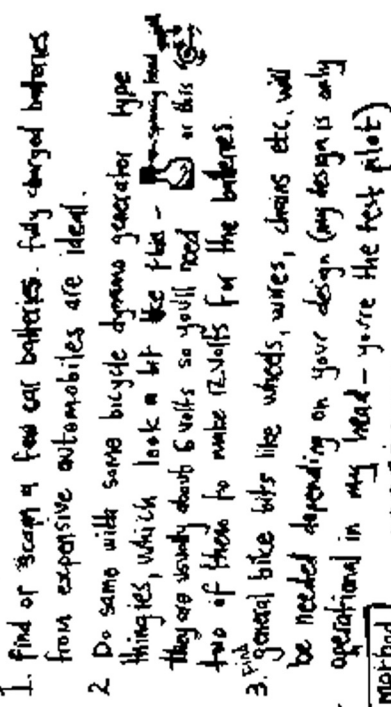 1. find or scam a few car batteries. fully charged batteries
from expensive automobiles are ideal.
2 Do same with some bicycle dynamo generator type
thingies, which look a bit like this - spinning head
or this
they are usually about 6 volts so you'll need
two of them to make 12 volts for the batteries.
3. Find general bike bits like wheels, wires, chains etc, will
be needed depending on your design (my design is only
operational in my head - you're the test pilot)
method